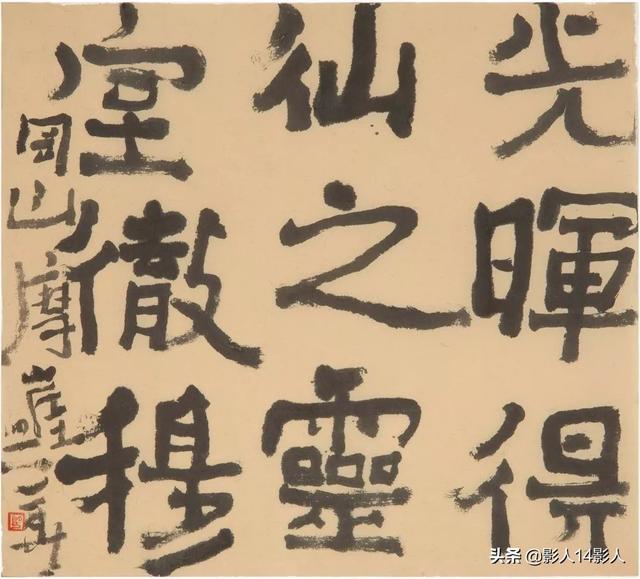 光暉得
仙之靈
室徹
岡山摩崖
头条 @影人14影人